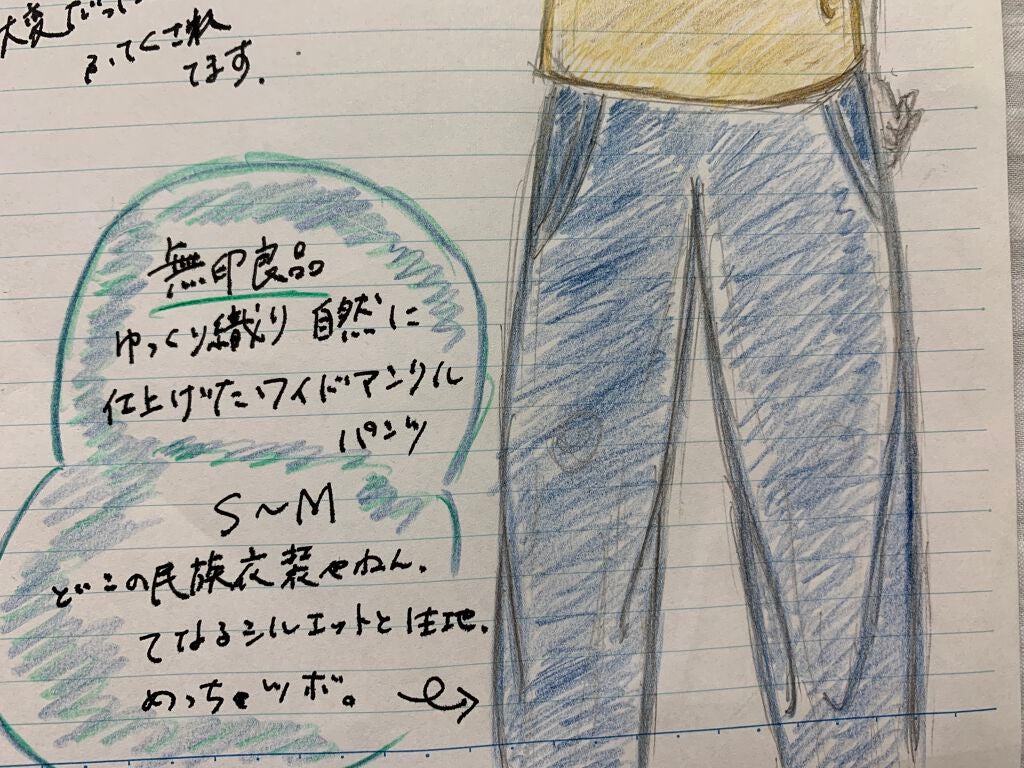 大変
きってくされ
てます.
無印良品
ゆっくり織り 自然に
仕上げたワイドアンクル
パンツ
S~M
どこの民族衣装やねん.
てなるシルエットと生地.
めっちゃツボ。